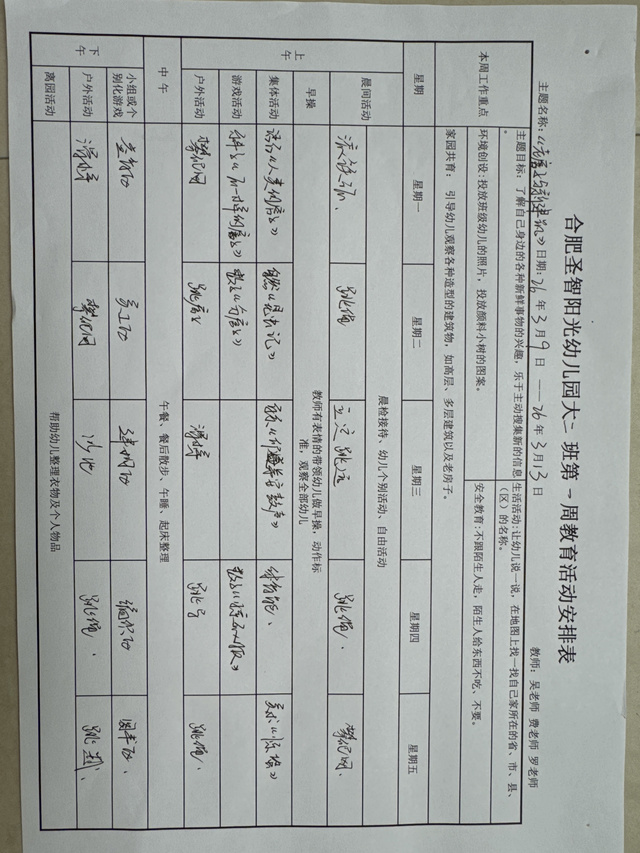 合肥圣智阳光幼儿园大二班第一周教育活动安排表
教师：吴老师 费老师 罗老师
主题名称：《 》日期：26年3月9日——26年3月13日
本周工作重点
主题目标：了解自己身边的各种新鲜事物的兴趣，乐于主动搜集新的信息。
生活活动：让幼儿说一说，在地图上找一找自己家所在的省、市、县、（区）的名称。
环境创设：投放班级幼儿的照片，投放颜料小树的图案。
安全教育：不跟陌生人走，陌生人给东西不吃、不要。
家园共育： 引导幼儿观察各种造型的建筑物，如高层、多层建筑以及老房子。
星期 星期一 星期二 星期三 星期四 星期五
上午
晨检接待、幼儿个别活动、自由活动
晨间活动 跳绳 立定跳远 跳绳 攀爬网
早操 教师有表情的带领幼儿做早操，动作标准，观察全部幼儿
集体活动 语言《人类的房子》 体智能
游戏活动 科学《不一样的房子》
户外活动 攀爬网 滑梯 跳绳
中午 午餐、餐后散步、午睡、起床整理
下午
小组或个别化游戏 益智区 美工区 建构区 编织区 图书区
户外活动 滑梯 攀爬网 沙池 跳绳
离园活动 帮助幼儿整理衣物及个人物品